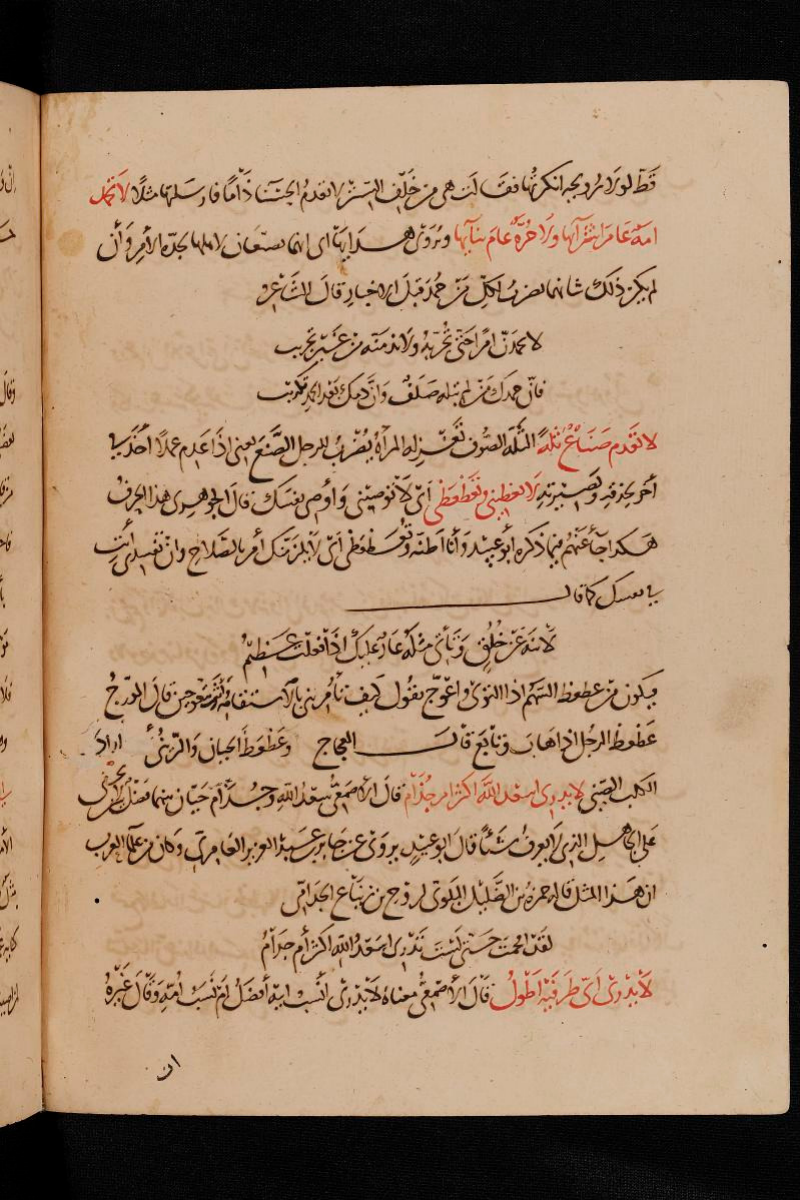 قط لولا مرو بجه انكرتها فقالت هي من خلف الستر لا تعدم الحسناء ذاما فارسلتها مثلا لا تحمد
امة عام اشترائها ولا حرة عام بنائها ويروى هدائها اي انهما يتصنعان لاهلهما لجدة الامر وان
لم يكن ذلك شانهما يضرب لكل من حمد قبل الاختبار قال الشاعر
لا تحمدن امرا حتى تجربه ولا تذمنه من غير تجريب
فان حمدك من لم تبله صلف وان ذمك بعد الحمد تكذيب
لا تعدم صناع ثلة الثلة الصوف تغزله المراة يضرب للرجل الصنع يعني اذا عدم عملا اخذ في
آخر لحذقه وبصيرته لا تعظيني وتعظعظي اي لا توصيني واوصي نفسك قال الجوهري هذا الحرف
هكذا جاء عنهم فيما ذكره ابو عبيد وانا اظنه وتعظعظي اي لا يكن منك أمر بالصلاح وان تفسدي أنت
في نفسك كما قال
لا تنه عن خلق وتأتي مثله عار عليك اذا فعلت عظيم
فيكون من عظعظ السهم اذا التوى واعوج يقول كيف تأمريني بالاستقامة وانت تتعوجين قال المؤرج
عظعظ الرجل اذا هاب وتابع قال العجاج وعظعظ الجبان والزئني اراد
الكلب الصيني لا يدرى اسعد الله اكثر ام جذام قال الاصمعي سعد الله وجذام حيان بينهما فضل لا يخفى
على الجاهل الذي لا يعرف شئا قال ابو عبيد يروى عن جابر بن عبد العزيز العامري وكان من علماء العرب
ان هذا المثل قاله حمزة بن الضليل البلوي لروح بن زنباع الجذامي
لقد افحمت حتى لست تدري اسعد الله اكثر أم جذام
لا يدرى أي طرفيه اطول قال الأصمعي معناه لا يدرى أنسب ابيه أفضل أم نسب امه وقال غيره
ان